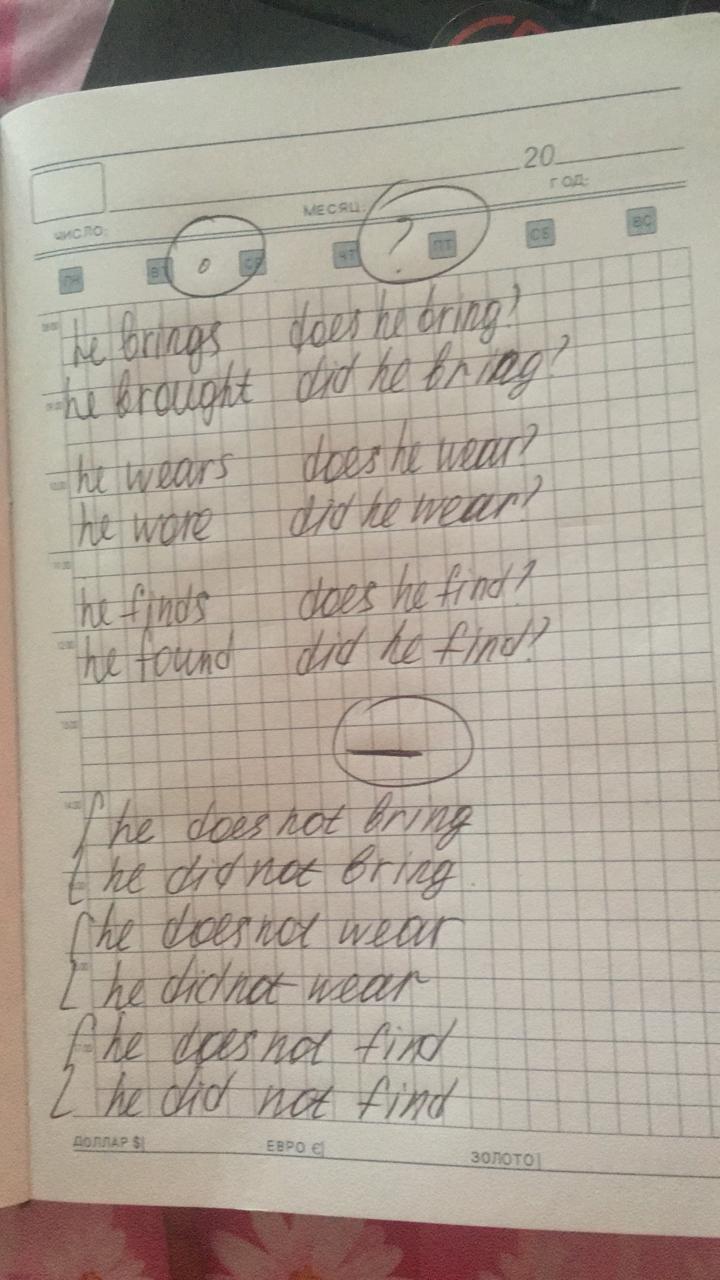 20
ЧИСЛО: МЕСЯЦ: ГОД:
ПН ВТ о СР ЧТ ? ПТ СБ ВС
he brings does he bring?
he brought did he bring?
he wears does he wear?
he wore did he wear?
he finds does he find?
he found did he find?
—
he does not bring
he did not bring
he does not wear
he did not wear
he does not find
he did not find
ДОЛЛАР $| ЕВРО €| ЗОЛОТО|